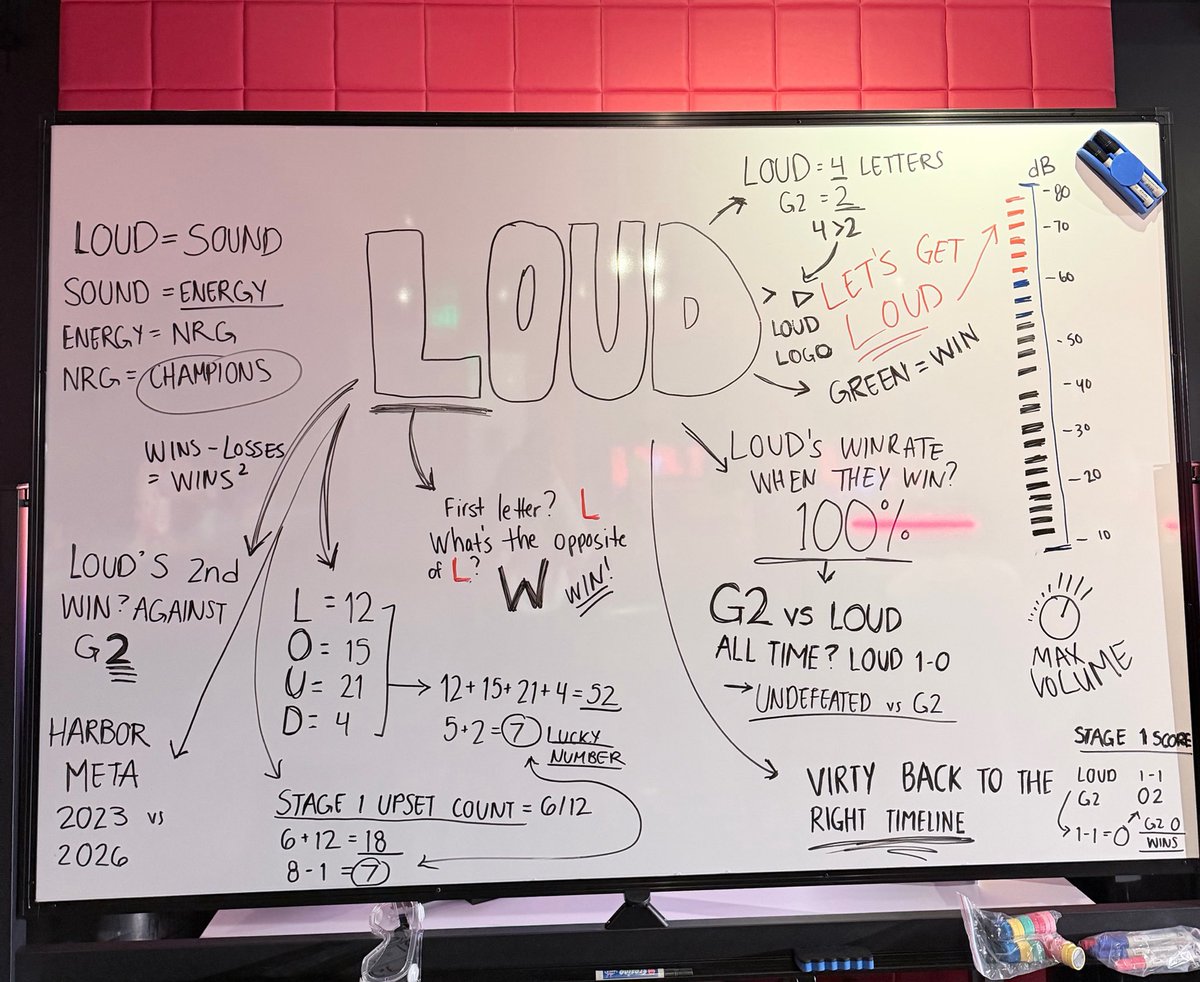 LOUD = SOUND
SOUND = ENERGY
ENERGY = NRG
NRG = CHAMPIONS
WINS - LOSSES
= WINS²
LOUD'S 2nd
WIN? AGAINST
G2
HARBOR
META
2023 vs
2026
LOUD
LOUD = 4 LETTERS
G2 = 2
4>2
> ▷
LOUD
LOGO
LET'S GET
LOUD
GREEN = WIN
First letter? L
What's the opposite
of L?
W WIN!
L = 12
O = 15
U = 21
D = 4
12+15+21+4=52
5+2=7 LUCKY
NUMBER
STAGE 1 UPSET COUNT = 6/12
6+12=18
8-1=7
LOUD'S WINRATE
WHEN THEY WIN?
100%
G2 vs LOUD
ALL TIME? LOUD 1-0
→ UNDEFEATED vs G2
VIRTY BACK TO THE
RIGHT TIMELINE
dB
-80
-70
-60
-50
-40
-30
-20
-10
MAX
VOLUME
STAGE 1 SCORE
LOUD 1-1
G2 02
1-1=0 G2 0
WINS